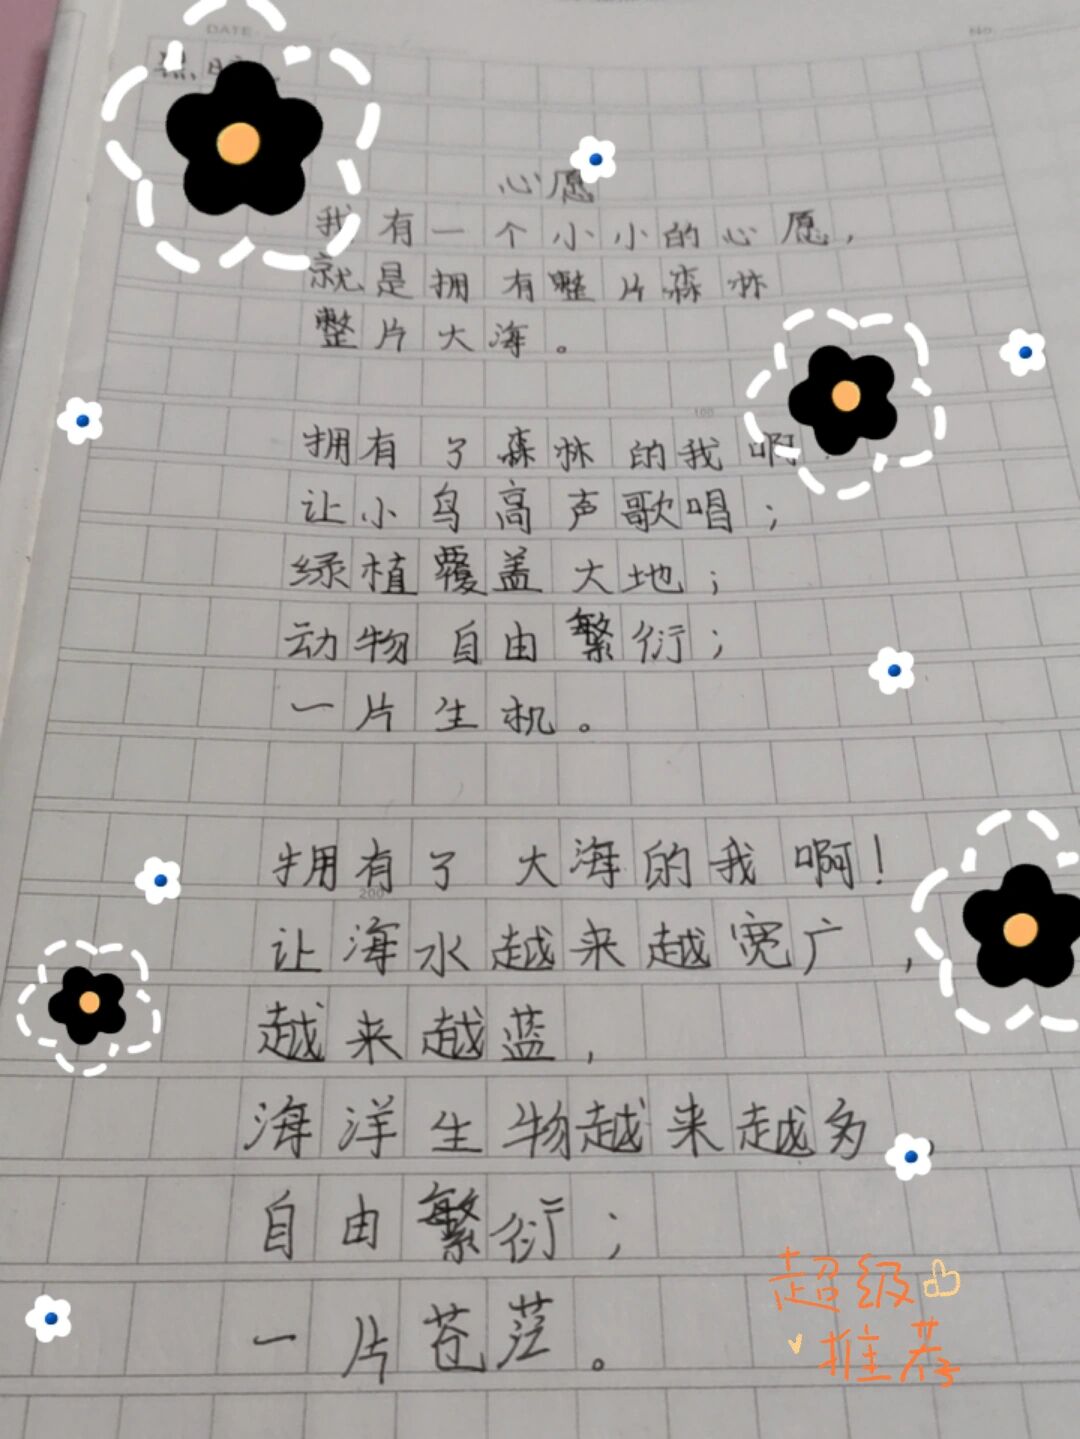 DATE
No.
心愿
我有一个小小的心愿，
就是拥有整片森林
整片大海。
100
拥有了森林的我啊
让小鸟高声歌唱；
绿植覆盖大地；
动物自由繁衍；
一片生机。
拥有了大海的我啊！
200
让海水越来越宽广，
越来越蓝，
海洋生物越来越多
自由繁衍；
一片苍茫。
超级
推荐